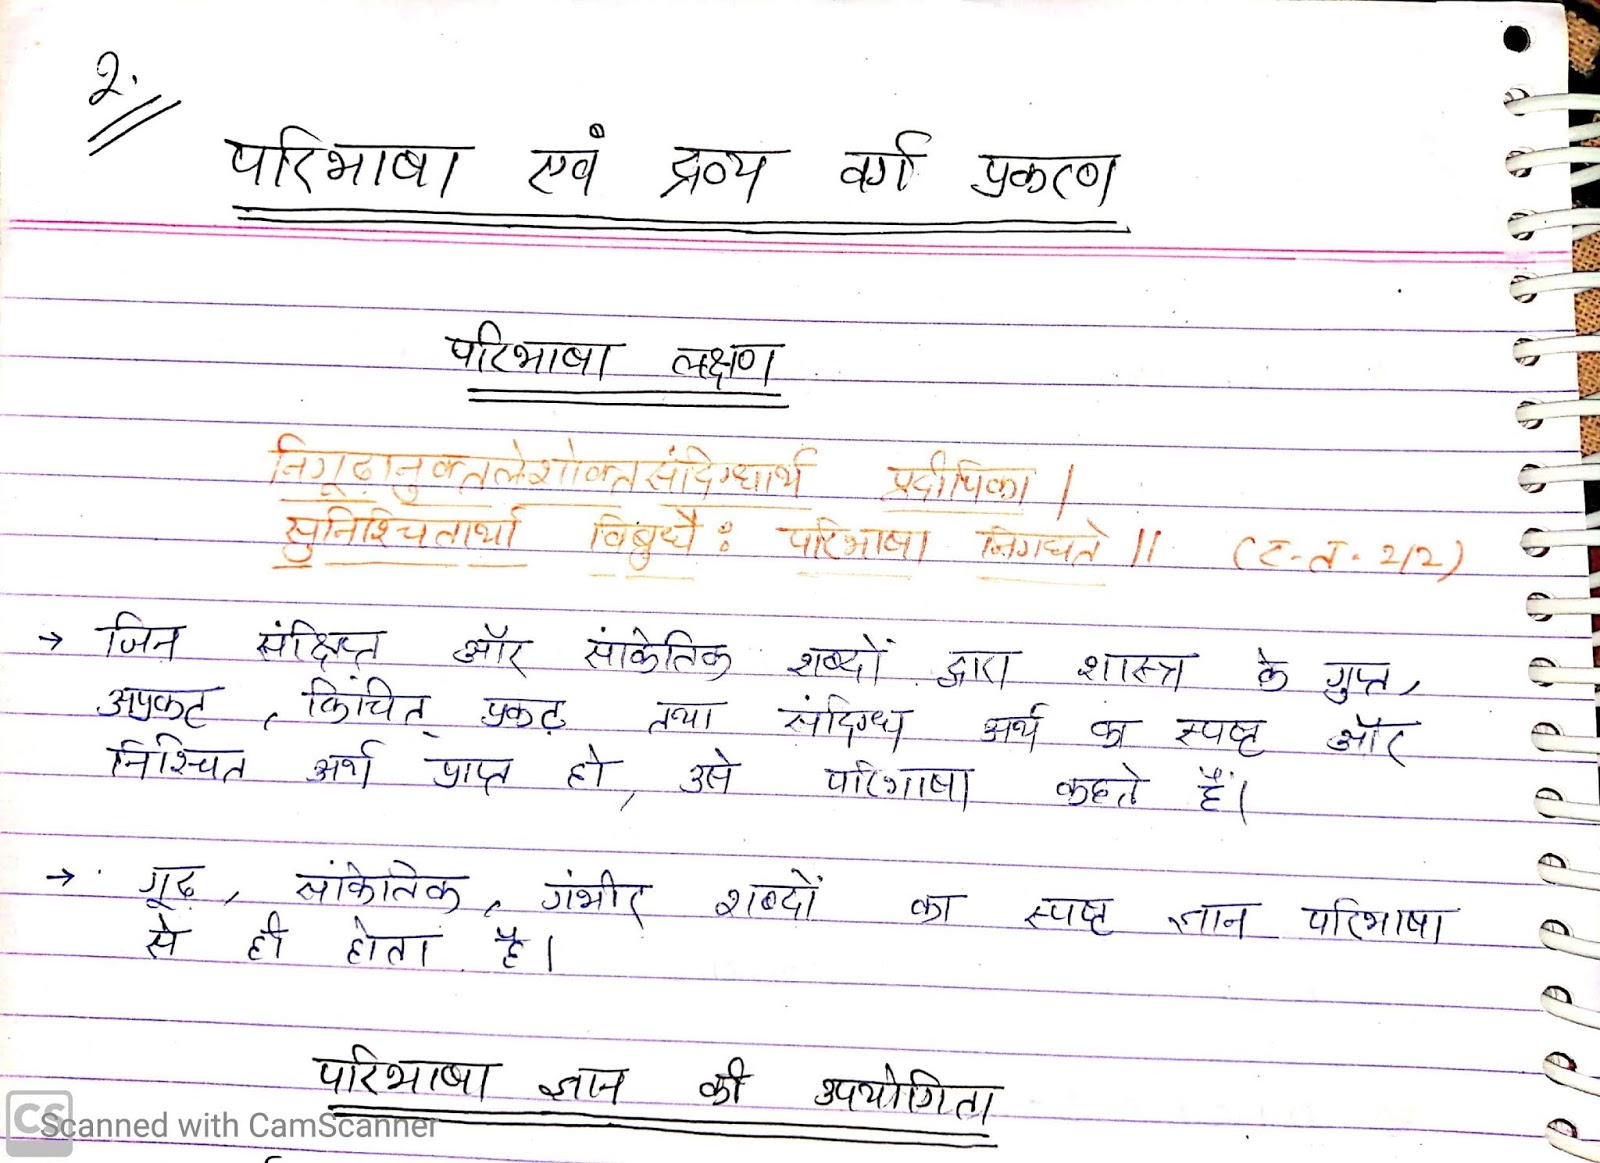 २.
परिभाषा एवं द्रव्य वर्ग प्रकरण
परिभाषा लक्षण
निगूढानुक्तलेशोक्तसंदिग्धार्थ प्रदीपिका |
सुनिश्चितार्था विबुधैः परिभाषा निगद्यते || (र.त. २/२)
→ जिन संक्षिप्त और सांकेतिक शब्दों द्वारा शास्त्र के गुप्त,
अप्रकट, किंचित् प्रकट तथा संदिग्ध अर्थ का स्पष्ट और
निश्चित अर्थ प्राप्त हो, उसे परिभाषा कहते हैं।
→ गूढ, सांकेतिक, गंभीर शब्दों का स्पष्ट ज्ञान परिभाषा
से ही होता है।
परिभाषा ज्ञान की उपयोगिता
CS Scanned with CamScanner